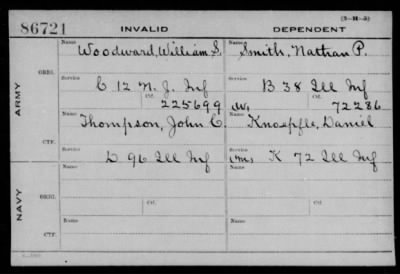 (3-H-5)
86721 INVALID DEPENDENT
Name Name
Woodward, William S. Smith, Nathan P.
ORIG.
Service Service
C 12 N. J. Inf B 38 Ill Inf
Ctf. Ctf.
225699 (W) 72286
ARMY
Name Name
Thompson, John C. Knoepfle, Daniel
CTF.
Service
D 96 Ill Inf (m) K 72 Ill Inf
Name Name
ORIG.
Service Ctf. Service Ctf.
NAVY
Name Name
CTF.